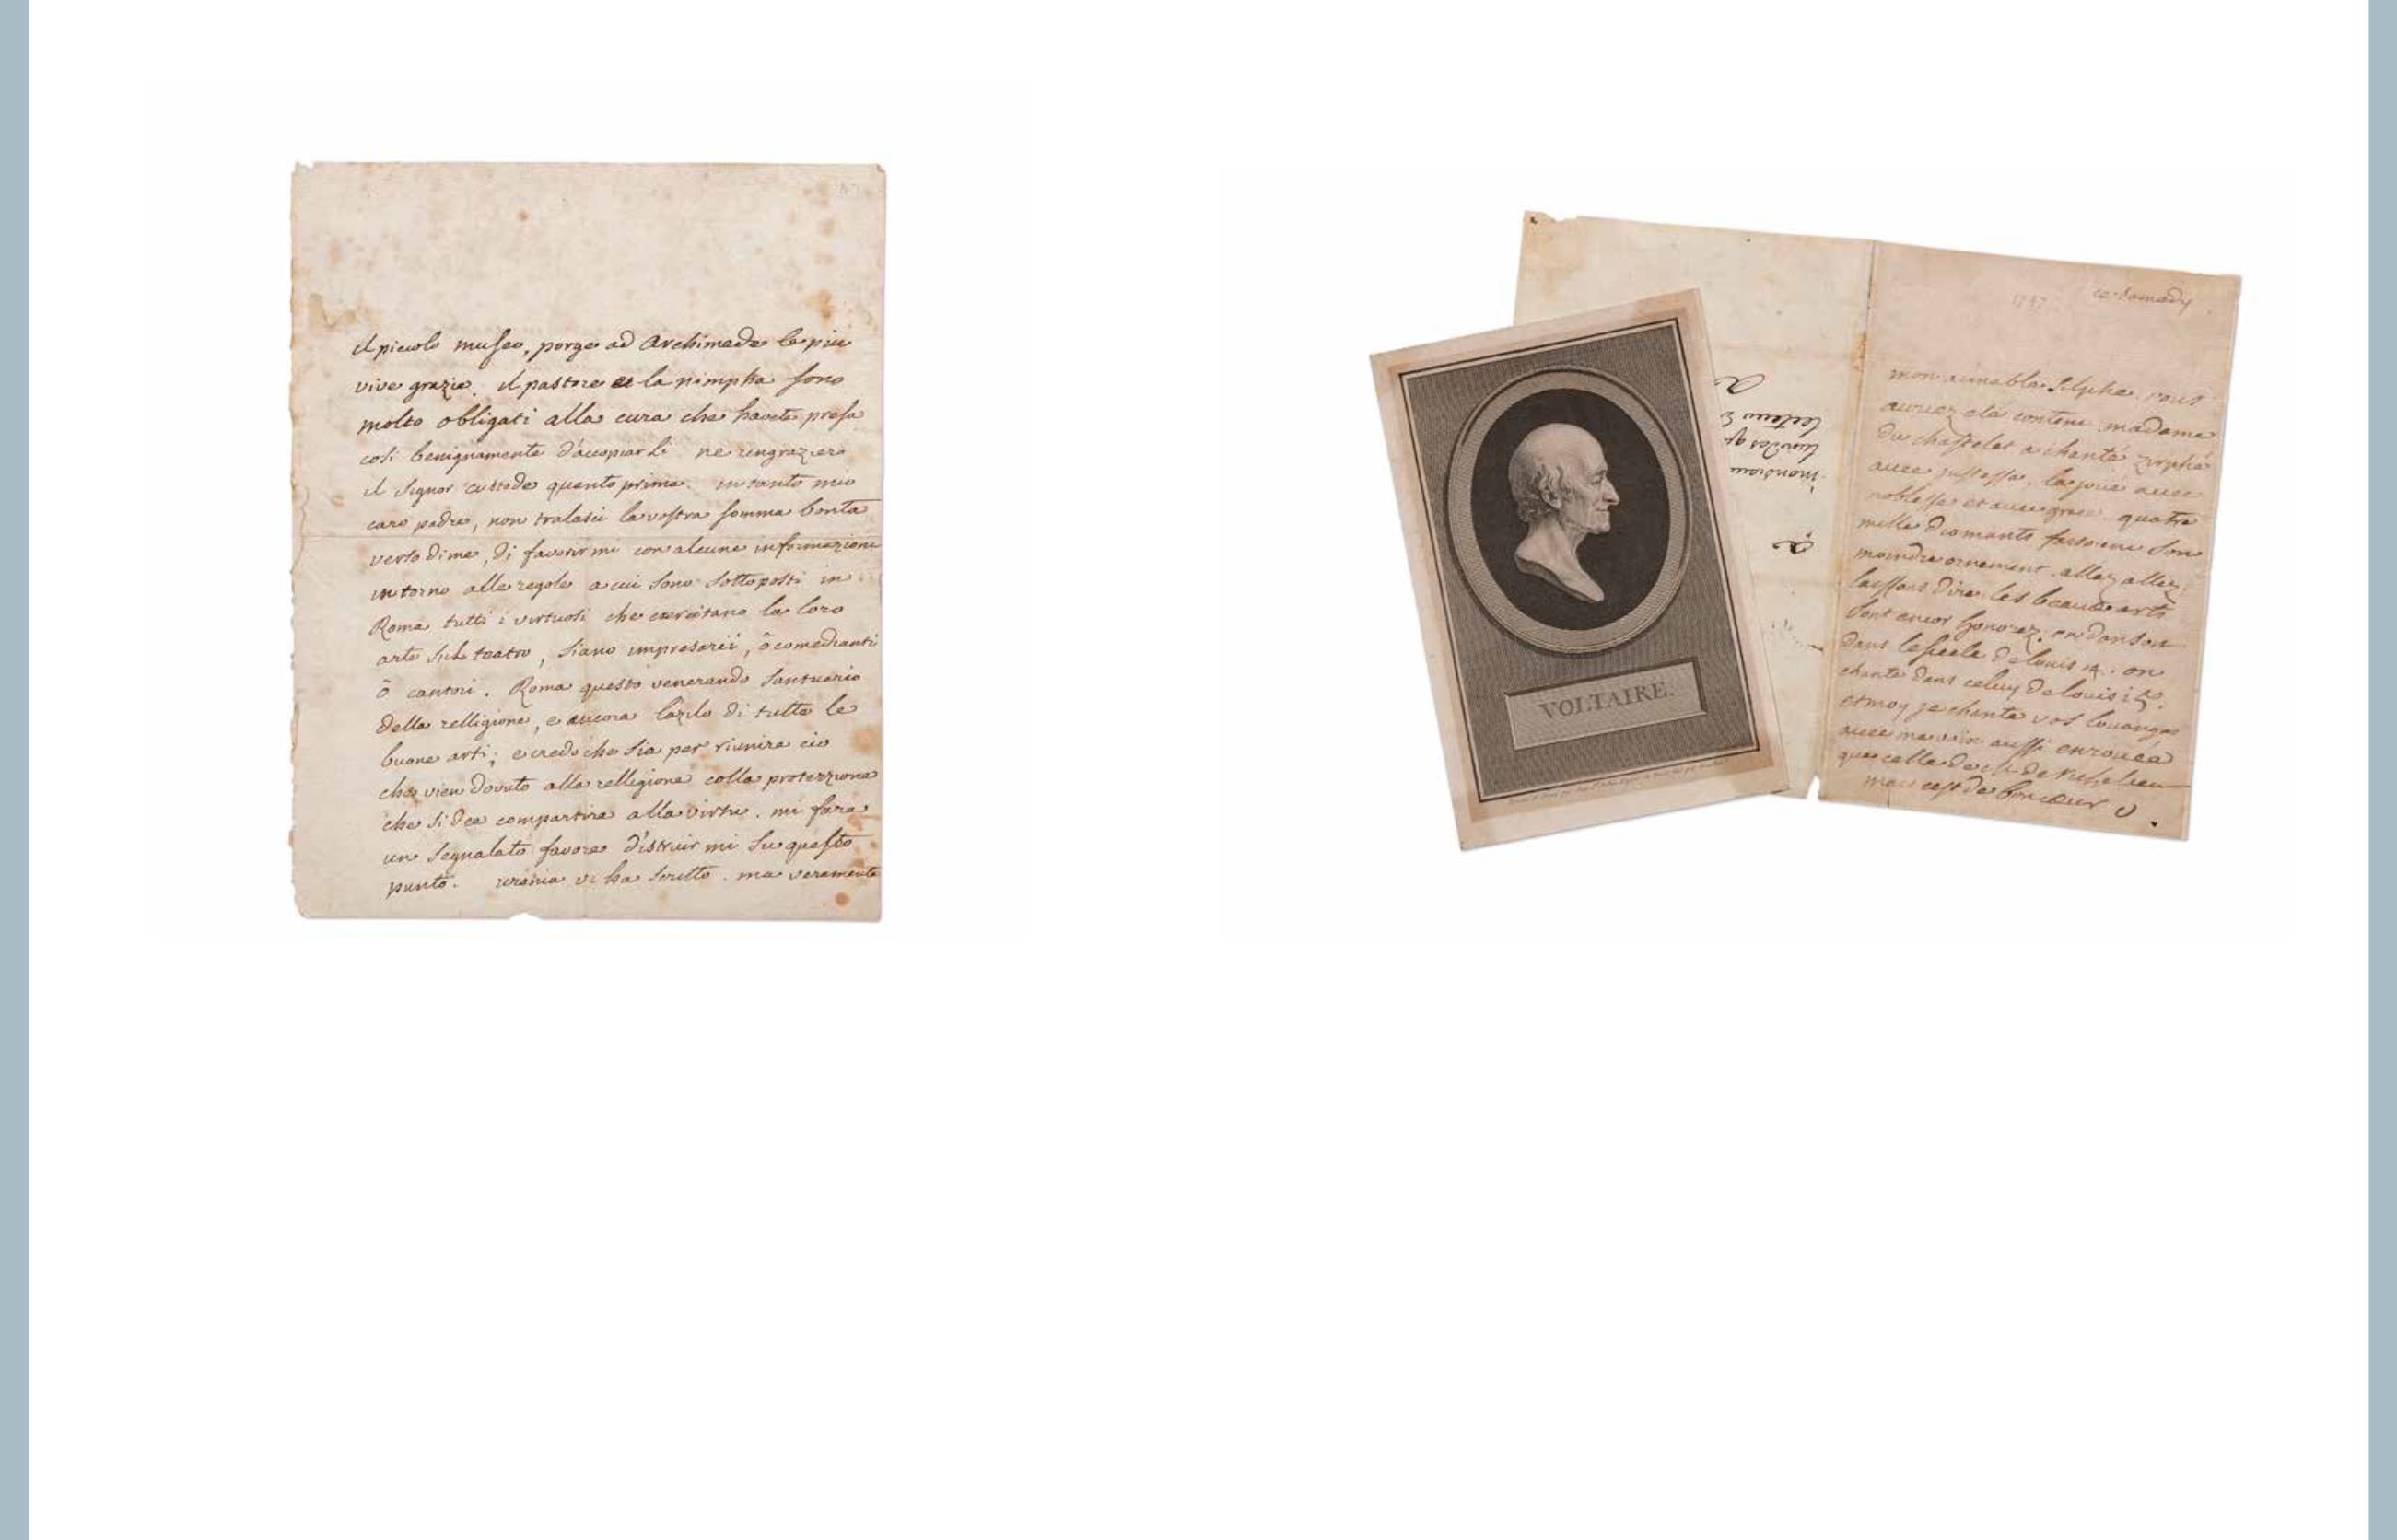 il piccolo museo, porge ad Archimede le piu
vive grazie. il pastore et la nimpha sono
molto obligati alla cura che havete presa
cosi benignamente d'accopiarli ne ringraziero
il signor custode quanto prima. in tanto mio
caro padre, non tralasci la vostra somma bonta
verso di me, di favorirmi con alcune informazioni
intorno alle regole a cui sono sottoposti in
Roma tutti i virtuosi che exercitano la loro
arte sul teatro, siano impresarii, ò comedianti
ò cantori. Roma questo venerando santuario
della relligione, e ancora l'azilo di tutte le
buone arti; e credo che sia per riunire cio
che vien dovuto alla relligione colla protezzione
che si dee compartire alla virtu. mi fara
un segnalato favore d'istruirmi su questo
punto. urania vi ha scritto. ma veramente
VOLTAIRE.
à
ce samedy
1747
mon aimable Silphe, vous
auriez eté content madame
du chastelet a chanté zirphé
avec justesse, l'a joué avec
noblesse et avec grace. quatre
mille diamants faisoient son
moindre ornement. allez allez
laissons dire, les beaux arts
sont encor honorez. on danson
dans le siecle de louis 14. on
chante dans celuy de louis 15.
et moy je chante vos louanges
avec ma voix aussi enrouée
que celle de de richelieu
mais c'est de bon cœur V.